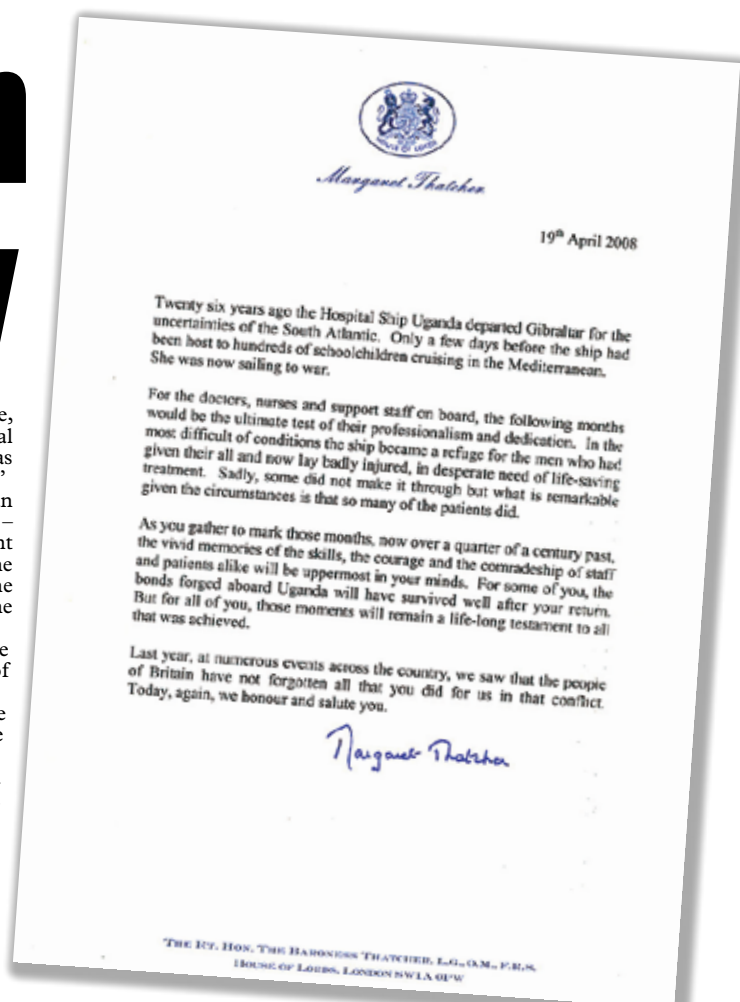 HOUSE OF LORDS
Margaret Thatcher
19th April 2008
Twenty six years ago the Hospital Ship Uganda departed Gibraltar for the
uncertainties of the South Atlantic. Only a few days before the ship had
been host to hundreds of schoolchildren cruising in the Mediterranean.
She was now sailing to war.
For the doctors, nurses and support staff on board, the following months
would be the ultimate test of their professionalism and dedication. In the
most difficult of conditions the ship became a refuge for the men who had
given their all and now lay badly injured, in desperate need of life-saving
treatment. Sadly, some did not make it through but what is remarkable
given the circumstances is that so many of the patients did.
As you gather to mark those months, now over a quarter of a century past,
the vivid memories of the skills, the courage and the comradeship of staff
and patients alike will be uppermost in your minds. For some of you, the
bonds forged aboard Uganda will have survived well after your return.
But for all of you, those moments will remain a life-long testament to all
that was achieved.
Last year, at numerous events across the country, we saw that the people
of Britain have not forgotten all that you did for us in that conflict.
Today, again, we honour and salute you.
Margaret Thatcher
THE RT. HON. THE BARONESS THATCHER, L.G., O.M., F.R.S.
HOUSE OF LORDS, LONDON SW1A 0PW